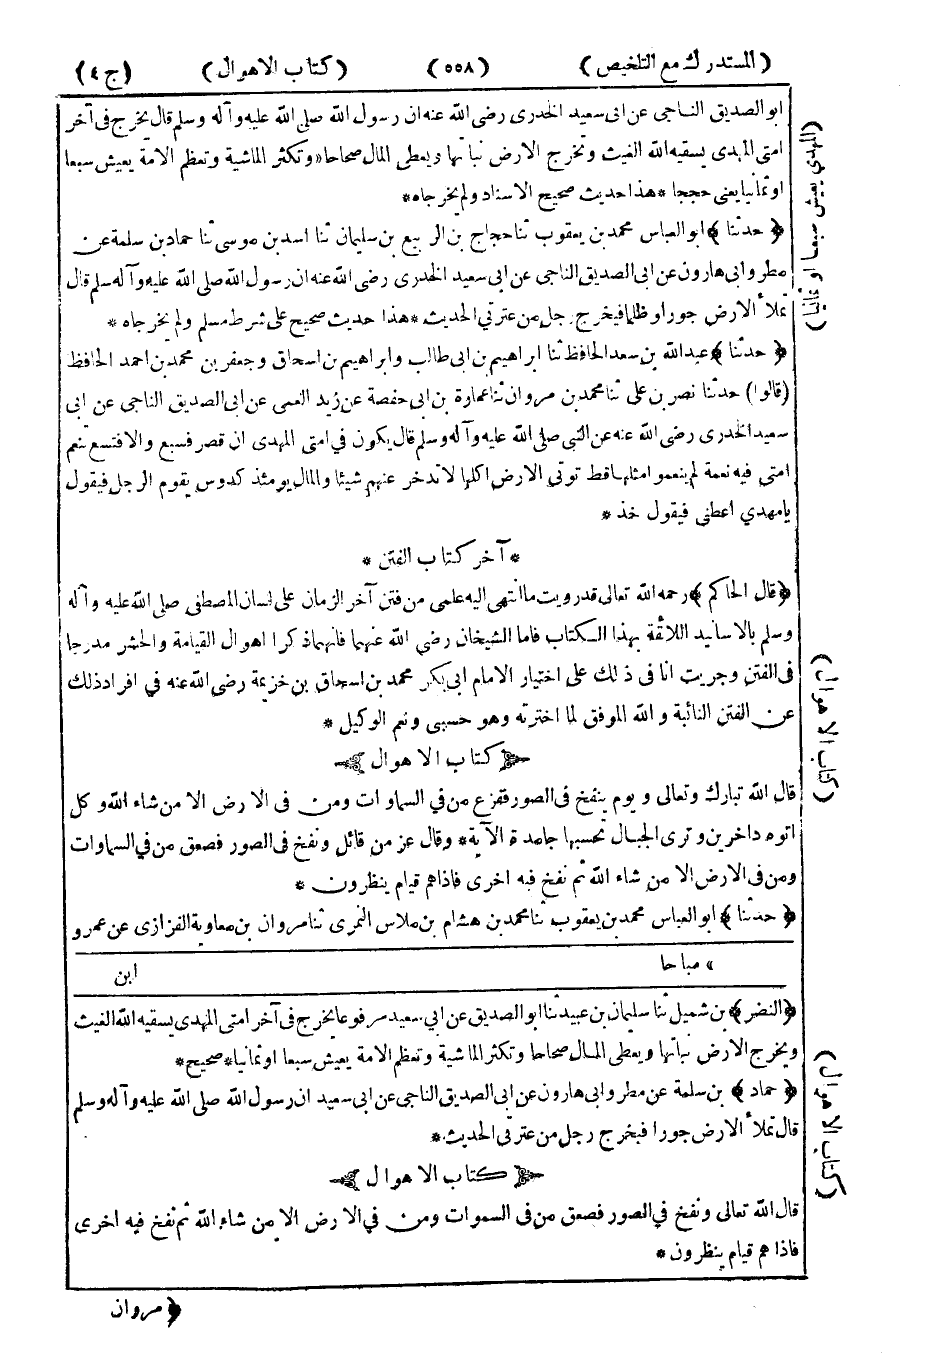 (المستدرك مع التلخيص) (٥٥٨) (كتاب الاهوال) (ج ٤)
ابو الصديق الناجى عن ابى سعيد الخدرى رضى الله عنه ان رسول الله صلى الله عليه وآله وسلم قال يخرج فى آخر
امتى المهدى يسقيه الله الغيث وتخرج الارض نباتها ويعطى المال صحاحا» وتكثر الماشية وتعظم الامة يعيش سبعا
او ثمانيا يعنى حججا * هذا حديث صحيح الاسناد ولم يخرجاه *
﴿ حدثنا ﴾ ابو العباس محمد بن يعقوب ثنا حجاج بن الربيع بن سليمان ثنا اسد بن موسى ثنا حماد بن سلمة عن
مطر وابى هارون عن ابى الصديق الناجى عن ابى سعيد الخدرى رضى الله عنه ان رسول الله صلى الله عليه وآله سلم قال
تملأ الارض جورا وظلما فيخرج رجل من عترتي الحديث * هذا حديث صحيح على شرط مسلم ولم يخرجاه *
﴿ حدثنا ﴾ عبد الله بن سعد الحافظ ثنا ابراهيم بن ابى طالب وابراهيم بن اسحاق وجعفر بن محمد بن احمد الحافظ
(قالوا) حدثنا نصر بن على ثنا محمد بن مروان ثنا عمارة بن ابى حفصة عن زيد العمى عن ابى الصديق الناجى عن ابى
سعيد الخدرى رضى الله عنه عن النبى صلى الله عليه وآله وسلم قال يكون في امتى المهدى ان قصر فسبع والا فتسع تنعم
امتى فيه نعمة لم ينعموا مثلها قط توتى الارض اكلها لا تدخر عنهم شيئا والمال يومئذ كدوس يقوم الرجل فيقول
يا مهدي اعطنى فيقول خذ *
* آخر كتاب الفتن *
﴿ قال الحاكم ﴾ رحمه الله تعالى قد رويت ما انتهى اليه علمى من فتن آخر الزمان على لسان المصطفى صلى الله عليه وآله
وسلم بالاسانيد اللائقة بهذا الكتاب فاما الشيخان رضى الله عنهما فانهما ذكرا اهوال القيامة والحشر مدرجا
فى الفتن وجريت انا فى ذلك على اختيار الامام ابى بكر محمد بن اسحاق بن خزيمة رضى الله عنه في افراد ذلك
عن الفتن النائبة والله الموفق لما اخترته وهو حسبى ونعم الوكيل *
كتاب الاهوال
قال الله تبارك وتعالى ويوم ينفخ فى الصور ففزع من في السماوات ومن فى الارض الا من شاء الله وكل
اتوه داخرين وترى الجبال تحسبها جامدة الآية* وقال عز من قائل ونفخ فى الصور فصعق من في السماوات
ومن فى الارض الا من شاء الله ثم نفخ فيه اخرى فاذاهم قيام ينظرون *
﴿ حدثنا ﴾ ابو العباس محمد بن يعقوب ثنا محمد بن هشام بن ملاس النمرى ثنا مروان بن معاوية الفزازى عن عمرو
» مباحا
ابن
﴿ النضر ﴾ بن شميل ثنا سليمان بن عبيد ثنا ابو الصديق عن ابى سعيد مرفوعا يخرج فى آخر امتى المهدى يسقيه الله الغيث
ويخرج الارض نباتها ويعطى المال صحاحا وتكثر الماشية وتعظم الامة يعيش سبعا او ثمانيا * صحيح *
﴿ حماد ﴾ بن سلمة عن مطر وابى هارون عن ابى الصديق الناجى عن ابى سعيد ان رسول الله صلى الله عليه وآله وسلم
قال تملأ الارض جورا فيخرج رجل من عترتى الحديث *
كتاب الاهوال
قال الله تعالى ونفخ في الصور فصعق من فى السموات ومن في الارض الا من شاء الله ثم نفخ فيه اخرى
فاذا هم قيام ينظرون *
﴿ مروان
(المهدي يعيش سبعا او ثمانيا)
(كتاب الاهوال)
(كتاب الاهوال)